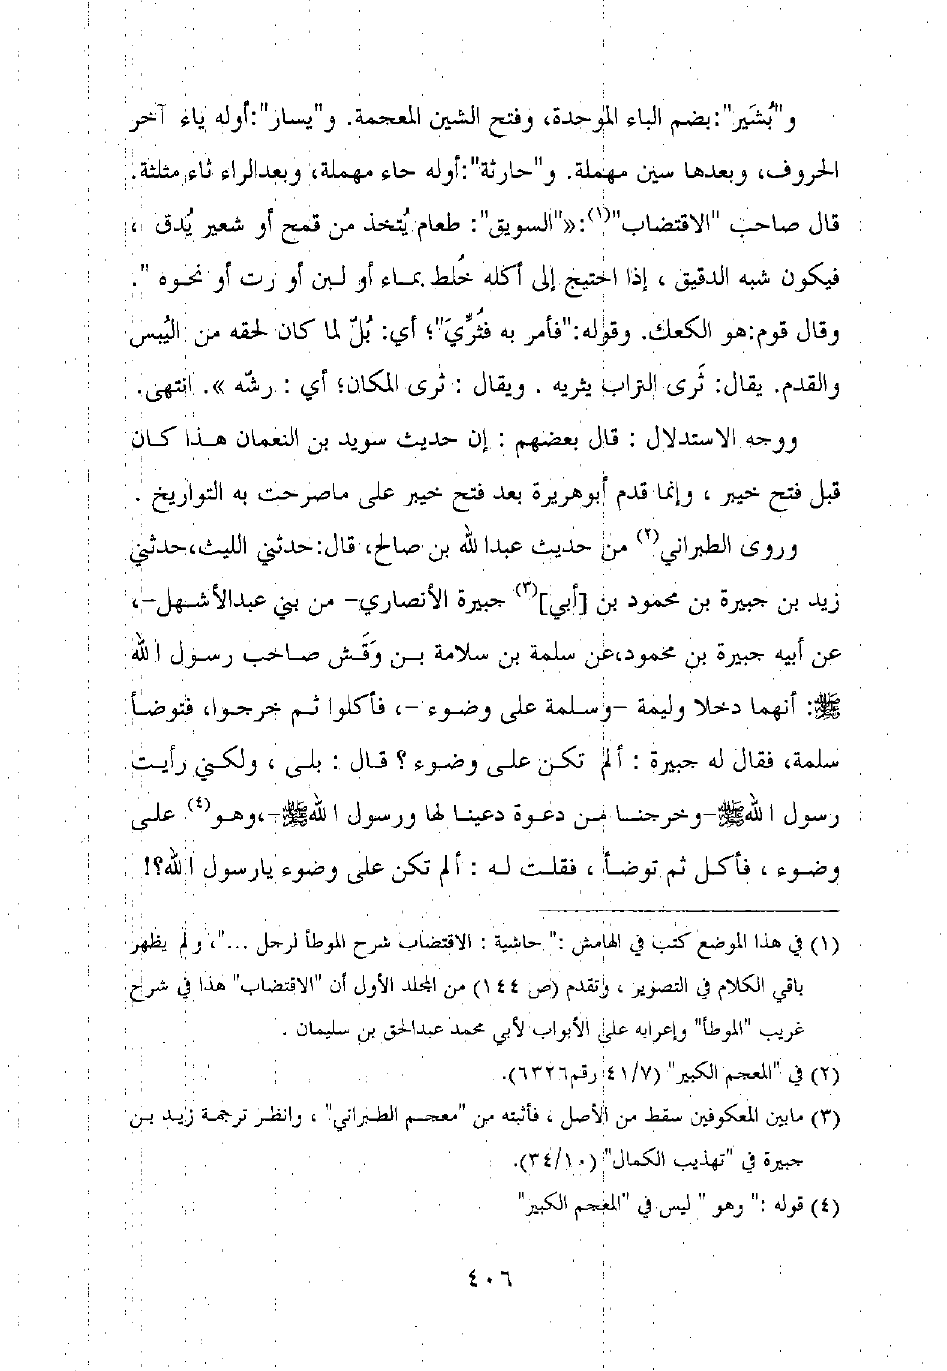 و"بُشَير":بضم الباء الموحدة، وفتح الشين المعجمة. و"يسار":أوله ياء آخر
الحروف، وبعدها سين مهملة. و"حارثة":أوله حاء مهملة، وبعدالراء ثاء مثلثة.
قال صاحب "الاقتضاب"(١):«"السويق": طعام يُتخذ من قمح أو شعير يُدق ،
فيكون شبه الدقيق ، إذا احتيج إلى أكله خُلط بماء أو لبن أو رت أو نحوه ".
وقال قوم:هو الكعك. وقوله:"فأمر به فثُرِّيَ"؛ أي: بُلّ لما كان لحقه من اليُبس
والقدم. يقال: ثَرى التراب يثريه . ويقال : ثرى المكان؛ أي : رشّه ». انتهى.
ووجه الاستدلال : قال بعضهم : إن حديث سويد بن النعمان هذا كان
قبل فتح خيبر ، وإنما قدم أبوهريرة بعد فتح خيبر على ماصرحت به التواريخ .
وروى الطبراني(٢) من حديث عبدالله بن صالح، قال:حدثني الليث،حدثني
زيد بن جبيرة بن محمود بن [أبي](٣) جبيرة الأنصاري- من بني عبدالأشهل-،
عن أبيه جبيرة بن محمود،عن سلمة بن سلامة بن وَقَش صاحب رسول الله
ﷺ: أنهما دخلا وليمة -وسلمة على وضوء -، فأكلوا ثم خرجوا، فتوضأ
سلمة، فقال له جبيرة : ألم تكن على وضوء ؟ قال : بلى ، ولكني رأيت
رسول اللهﷺ-وخرجنا من دعوة دعينا لها ورسول اللهﷺ-،وهو(٤) على
وضوء ، فأكل ثم توضأ ، فقلت له : ألم تكن على وضوء يارسول الله؟!
(١) في هذا الموضع كتب في الهامش :" حاشية : الاقتضاب شرح الموطأ لرجل ..."، و لم يظهر
باقي الكلام في التصوير ، وتقدم (ص ١٤٤) من المجلد الأول أن "الاقتضاب" هذا في شرح
غريب "الموطأ" وإعرابه على الأبواب لأبي محمد عبدالحق بن سليمان .
(٢) في "المعجم الكبير" (٤١/٧ رقم٦٣٢٦).
(٣) مابين المعكوفين سقط من الأصل ، فأثبته من "معجم الطبراني" ، وانظر ترجمة زيد بن
جبيرة في "تهذيب الكمال" (٣٤/١٠).
(٤) قوله :" وهو " ليس في "المعجم الكبير"
٤٠٦